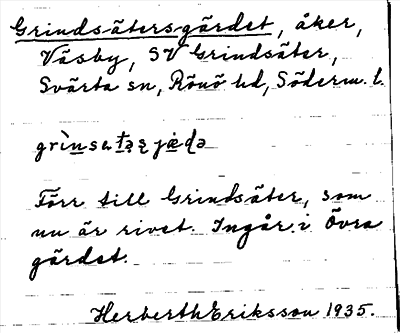 Grindsätersgärdet, åker,
Väsby, SV Grindsäter,
Svärta sn, Rönö hd, Söderm. l.
Förr till Grindsäter, som
nu är rivet. Ingår i Övra
gärdet.
Herberth Eriksson 1935.